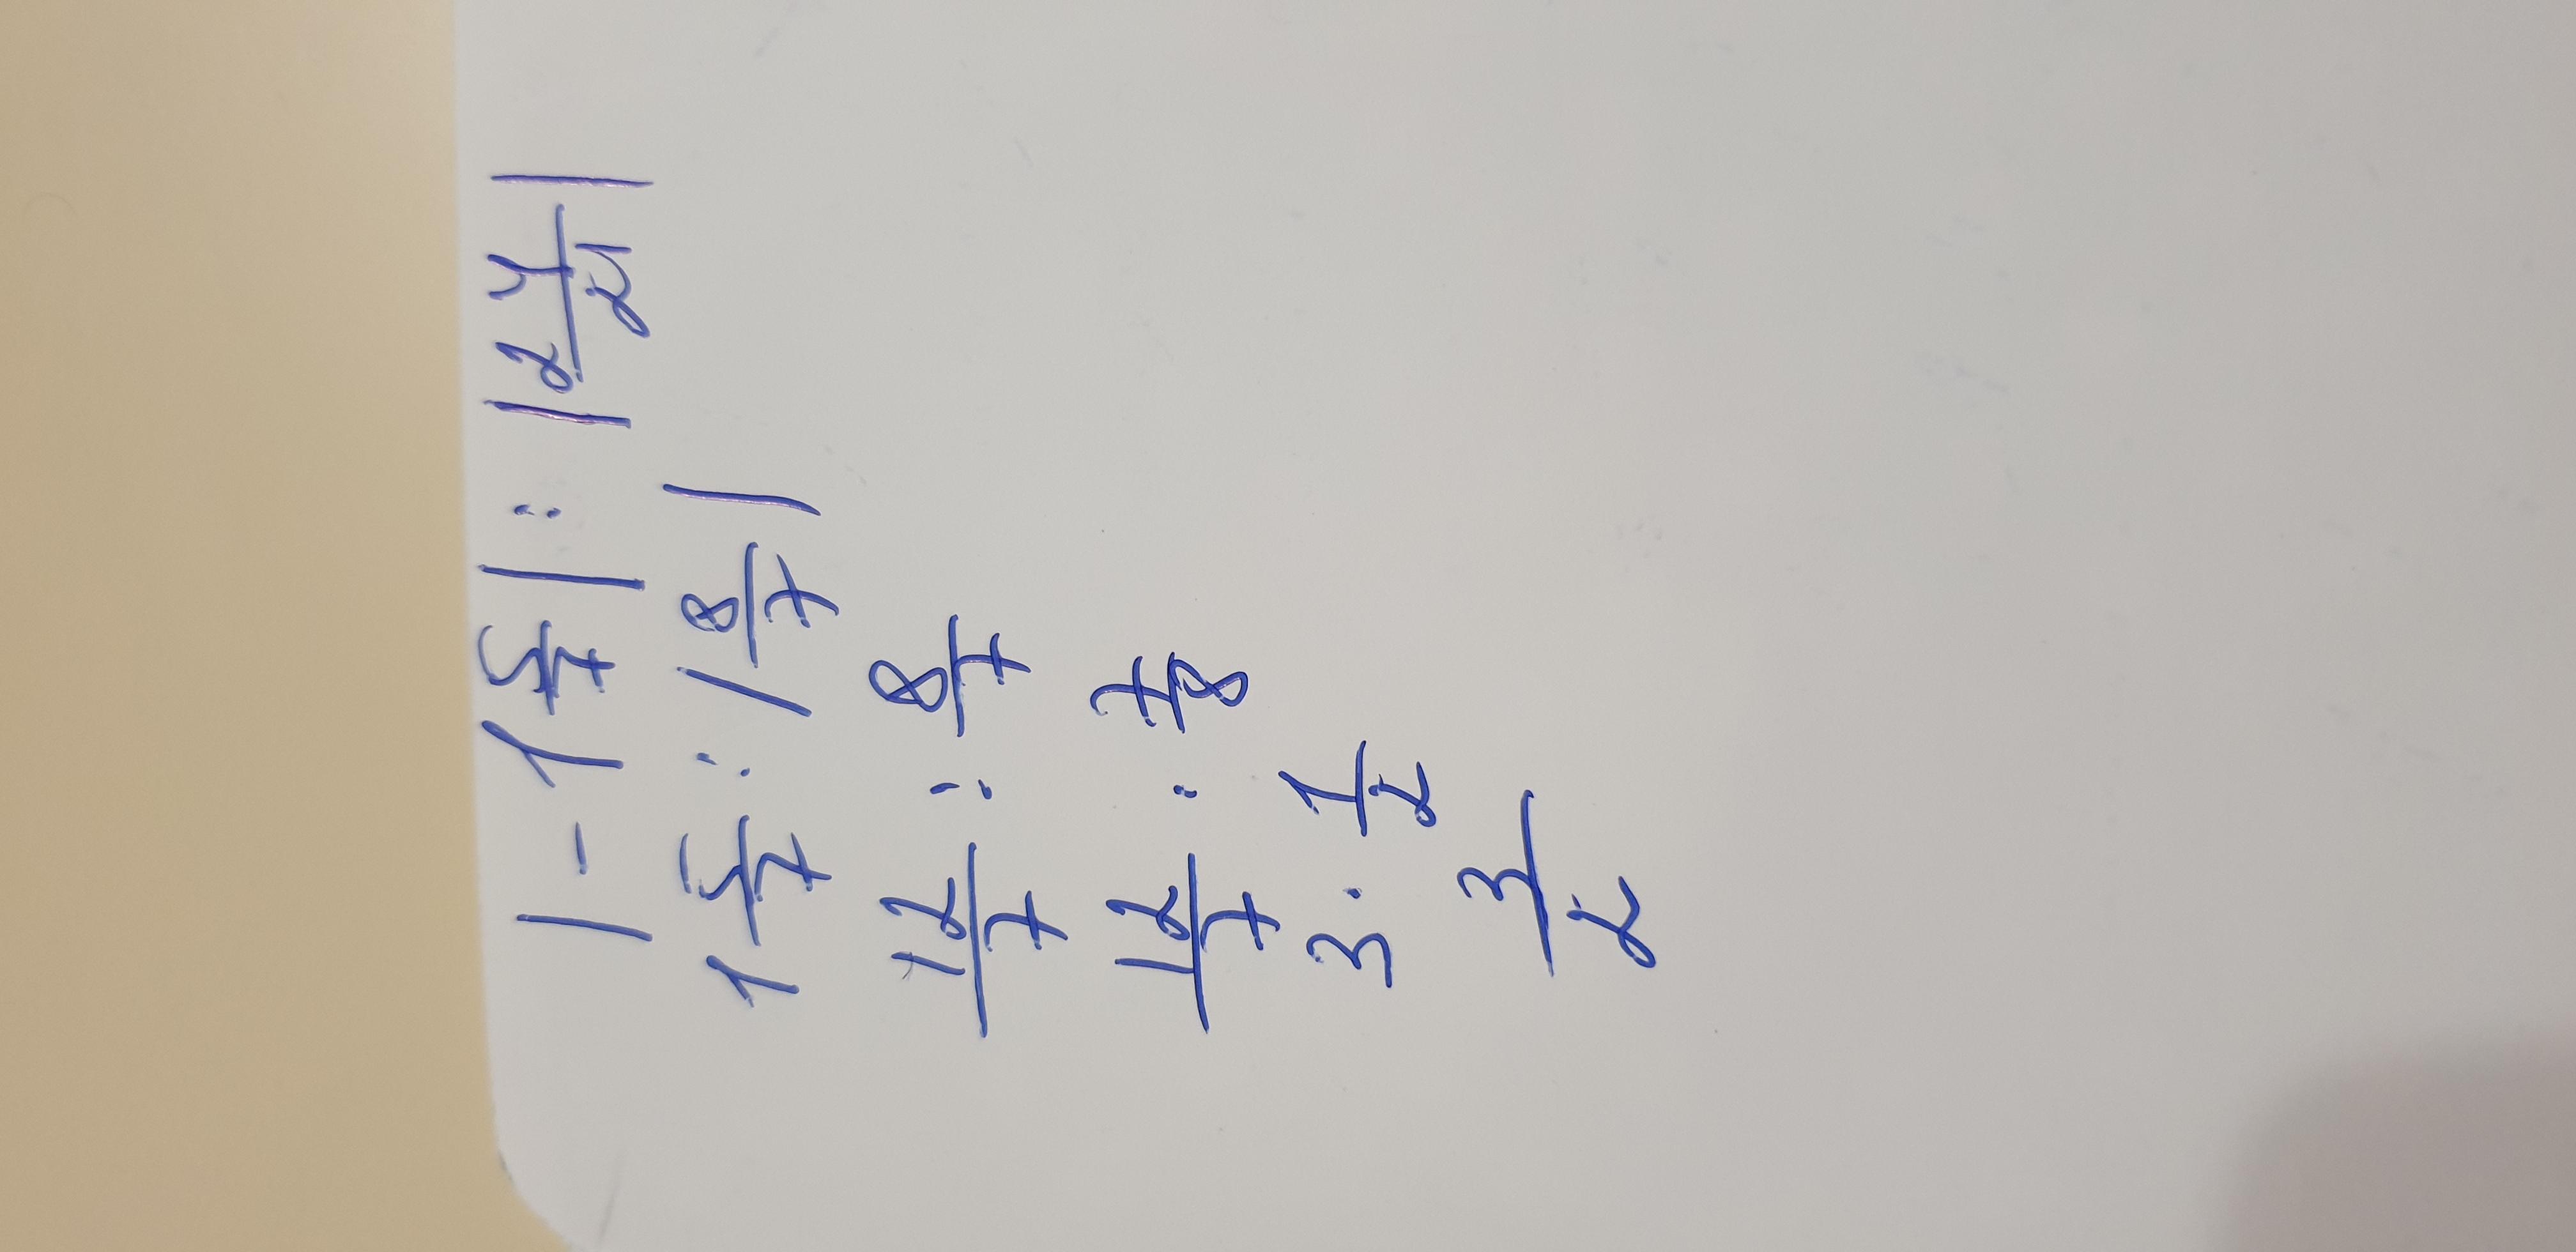 |- 1 5/7| : |24/21|
1 5/7 : |8/7|
12/7 : 8/7
12/7 · 7/8
3 · 1/2
3/2